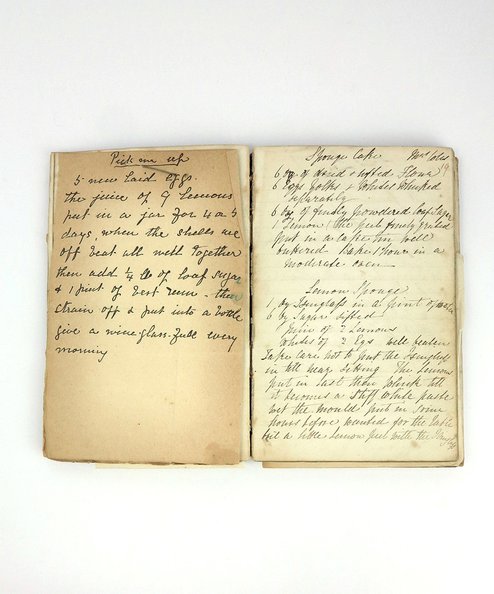 Pick me up
5 new laid eggs.
the juice of 9 Lemons
put in a jar for 4 or 5
days, when the shells are
off beat all well together
then add ¼ lb of loaf sugar
& 1 pint of best rum - then
strain off & put into a bottle
give a wine glass-full every
morning
Sponge Cake Mrs Coles
6 oz of dried & sifted Flour
6 Eggs yolks & Whites Whisked
separately
6 oz of finely powdered loaf sugar
1 Lemon the peel finely grated
put in a cake tin well
buttered bake 1 hour in a
moderate oven
Lemon Sponge
1 oz Isinglass in a pint of water
6 oz Sugar sifted
Juice of 2 Lemons
Whites of 2 Eggs well beaten
Take care not to put the Isinglass
in till near Setting The Lemons
put in last then Whisk till
it becomes a Stiff White paste
wet the mould put in Some
hours before wanted for the Table
a little Lemon peel with the